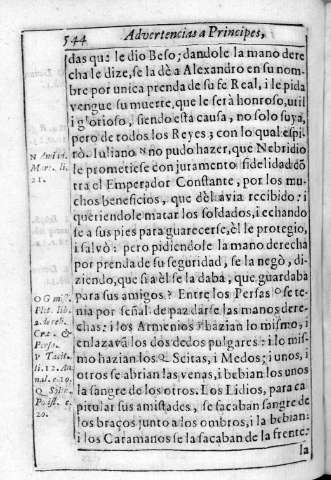 544 Advertencias a Principes,
das que le dio Beso; dandole la mano dere
cha le dize, se la dè a Alexandro en su nom
bre por unica prenda de su fe Real, i le pida
vengue su muerte, que le serà honroso, util
i glorioso, siendo esta causa, no solo suya,
pero de todos los Reyes; con lo qual espi
rò. Iuliano N no pudo hazer, que Nebridio
le prometiese con juramento fidelidad cõ
tra el Emperador Constante, por los mu
chos beneficios, que dèl avia recibido: i
queriendole matar los soldados, i echando
se a sus pies para guarecerse, èl le protegio,
i salvò: pero pidiendole la mano derecha
por prenda de su seguridad, se la negò, di
ziendo, que si a èl se la daba, que guardaba
para sus amigos? Entre los Persas O se te
nia por señal de paz darse las manos dere
chas: i los Armenios P hazian lo mismo, i
enlazavã los dos dedos pulgares: i lo mis
mo hazian los Q Scitas, i Medos; i unos, i
otros se abrian las venas, i bebian los unos
la sangre de los otros. Los Lidios, para ca
pitular sus amistades, se sacaban sangre de
los braços junto a los ombros, i la bebian:
i los Caramanos se la sacaban de la frente:
la
N
Mar. li.
21.
O
lib.
Persa.
P Tacit.
li. 12. An
nal.
Q
20.